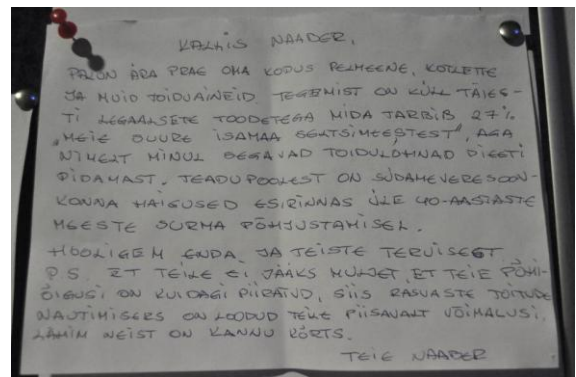 KALLIS NAABER,
PALUN ÄRA PRAE OMA KODUS PELMEENE, KOTLETTE
JA MUID TOIDUAINEID. TEGEMIST ON KÜLL TÄIES-
TI LEGAALSETE TOODETEGA MIDA TARBIB 27%
"MEIE SUURE ISAMAA SELTSIMEESTEST", AGA
NIMELT MINUL SEGAVAD TOIDULÕHNAD DIEETI
PIDAMAST. TEADUPOOLEST ON SÜDAMEVERESOON-
KONNA HAIGUSED ESIRINNAS ÜLE 40-AASTASTE
MEESTE SURMA PÕHJUSTAMISEL.
HOOLIGEM ENDA JA TEISTE TERVISEST
P.S. ET TEILE EI JÄÄKS MULJET, ET TEIE PÕHI-
ÕIGUSI ON KUIDAGI PIIRATUD, SIIS RASVASTE TOITUDE
NAUTIMISEKS ON LOODUD TEILE PIISAVALT VÕIMALUSI.
LÄHIM NEIST ON KANNU KÕRTS.
TEIE NAABER